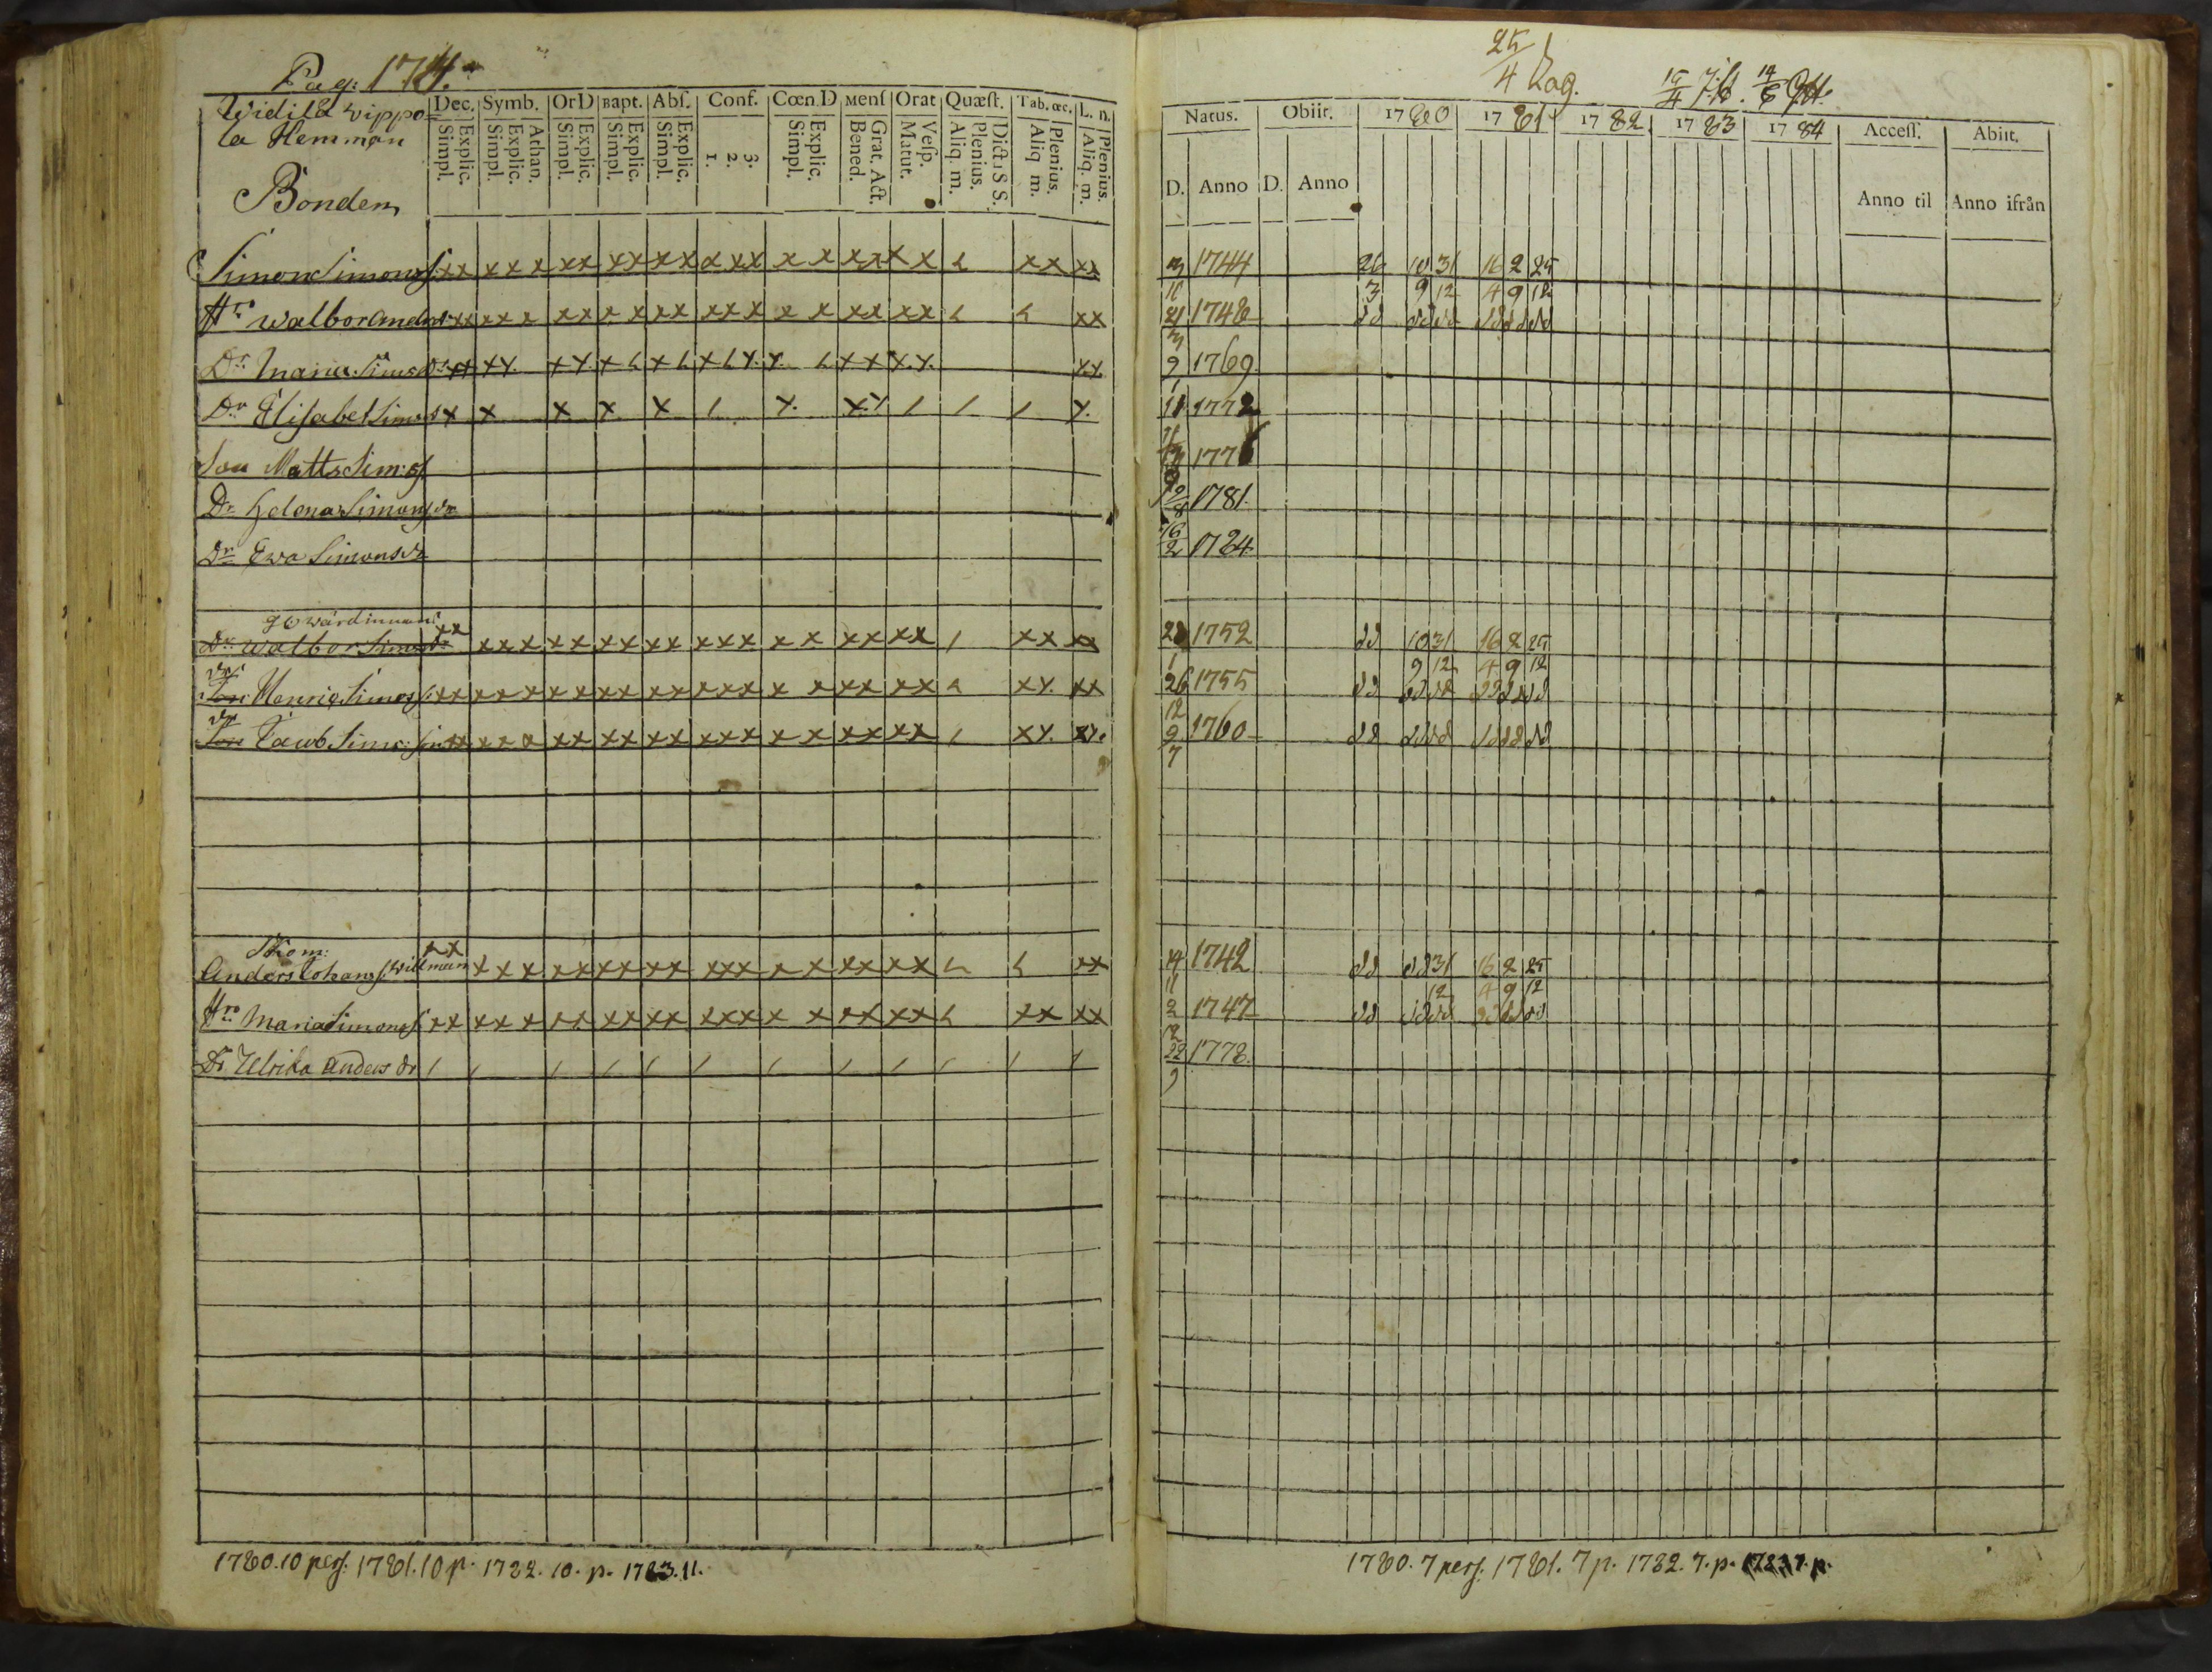 Pag: 174.
Widilä Vippo=
la Hemman
Bonden
Dec. Symb. Or D Bapt. Abſ. Conf. Cœn. D Menſ Orat Quæſt. Tab. œc. L. n.
Explic. Simpl. Athan. Explic. Simpl. Explic. Simpl. Explic. Simpl. Explic. Simpl. 3. 2. 1. Explic. Simpl. Grat. Act. Bened. Veſp. Matut. Dicta S S. Plenius. Aliq. m. Plenius. Aliq m. Plenius. Aliq. m.
Simon Simonsſ: xx xxx xx xx xx xxx x x xx x x xx xx
Hru Walbor Anders xx xxx xx x x xx xxx x x xx xx xx
Dr. Maria Simonsdr
Dr Elisabet Simonsd x x x x x / x. x.y / / / y.
Son Matts Sim:sſ
Dr. Helena Simonsdr
Dr. Ewa Simonsdr
Dr. Walbor Simonsdr xx xxx xx xx xx xxx x x xx xx / xx xx
Son Henric Simonsſ: xx xxx xx xx xx xxx x x xx xx xx
Son Jacob Simo: xx xxx xx xx xx xxx x x xx xx / xy.
Skom:
Anders Johansſ. Willman xx xxx xx xx xx xxx x x xx xx xx
Hru Maria Simonsd xx xxx xx xx xx xxx x x xx xx xx xx
Dr. Ulrika Anders dr / / / / / / / / / / / /
1780. 10 perſ: 1781. 10 p. 1782. 10. p. 1783. 11.
25/4 Lag.
19/4 14/6
Natus. Obiit. 1780 1781 1782. 1783 1784 Acceſſ. Abiit.
D. Anno D. Anno Anno til Anno ifrån
1744 26/3 10/9 31/12 16/4 2/9 25/12
21/3 1748
9/1 1769
11 1772
1776
12/8 1781.
16/2 1784
1752 10/9 31/12 16/4 2/9 25/12
26/12 1755
9/7 1760
14/11 1742 31/12 16/4 2/9 25/12
2/2 1747
22/9 1778.
1780. 7 perſ: 1781. 7 p. 1782. 7. p. 1783. 7. p.